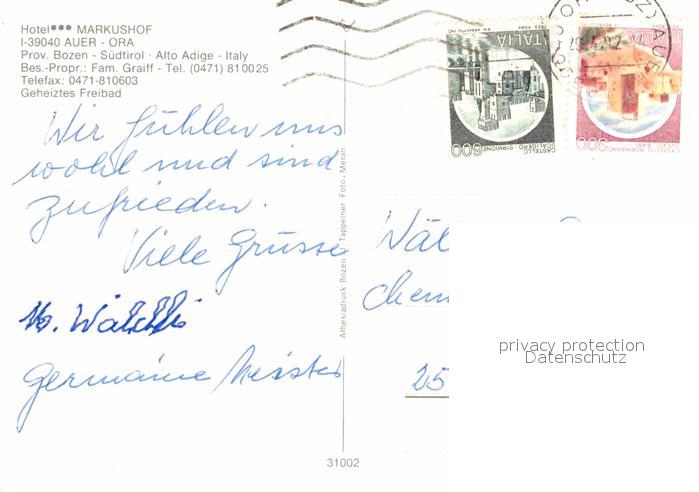 Hotel*** MARKUSHOF
I-39040 AUER - ORA
Prov. Bozen - Südtirol · Alto Adige - Italy
Bes.-Propr.: Fam. Graiff - Tel. (0471) 810025
Telefax: 0471-810603
Geheiztes Freibad
Wir fühlen uns
wohl und sind
zufrieden.
Viele Grüsse
Germaine Meister
Athesiadruck Bozen - Tappeiner Foto, Meran
31002
ITALIA
600
CASTELLO
SCALIGERO SIRMIONE
300
CASTELLO NORMANNO
Wäl
Chem
25
privacy protection
Datenschutz